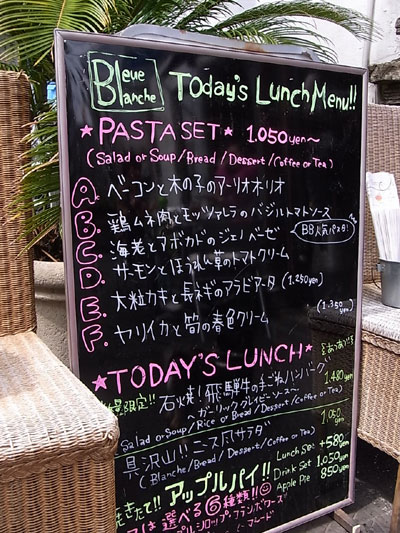 Bleue Blanche
Today's Lunch Menu!!
★PASTA SET★ 1.050yen〜
(Salad or Soup/Bread/Dessert/Coffee or Tea)
A. ベーコンと木の子のアーリオオーリオ
B. 鶏ムネ肉とモッツァレラのバジルトマトソース
C. 海老とアボカドのジェノベーゼ
BB人気パスタ!
D. サーモンとほうれん草のトマトクリーム
E. 大粒カキと長ネギのアラビアータ (1.250yen)
F. ヤリイカと筍の春色クリーム (1.350yen)
★TODAY'S LUNCH★
限定!! 石焼!飛騨牛の手ごねハンバーグ 1.480yen
〜ガーリックグレイビーソース〜
(Salad or Soup/Rice or Bread/Dessert/Coffee or Tea)
具沢山!!ニース風サラダ 1.050yen
(Blanche/Bread/Dessert/Coffee or Tea)
焼きたて!!アップルパイ!!
Lunch Set +580yen
Drink Set 1.050yen
Apple Pie 850yen
選べる⑥種類!!